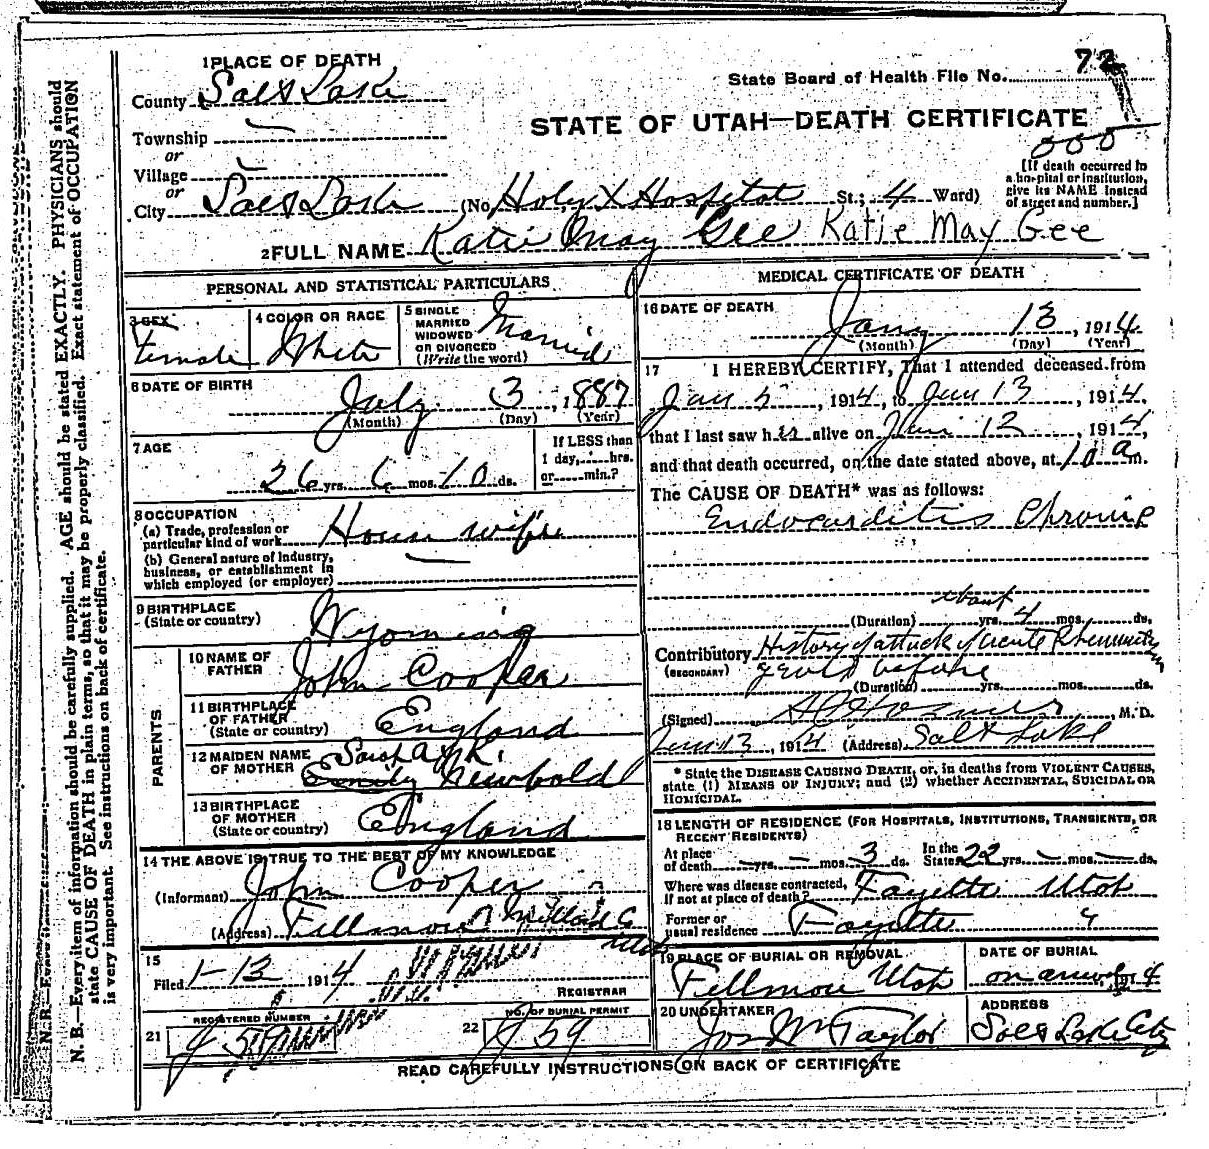 1 PLACE OF DEATH
County Salt Lake
Township
or
Village
or
City Salt Lake (No. Holy X Hospital St.; 4 Ward)
State Board of Health File No. 72
STATE OF UTAH—DEATH CERTIFICATE
[If death occurred in
a hospital or institution,
give its NAME instead
of street and number.]
2 FULL NAME Katie May Gee Katie May Gee
PERSONAL AND STATISTICAL PARTICULARS
3 SEX
Female
4 COLOR OR RACE
White
5 SINGLE
MARRIED
WIDOWED
OR DIVORCED
(Write the word)
Married
6 DATE OF BIRTH
July 3, 1887
(Month) (Day) (Year)
7 AGE
26 yrs. 6 mos. 10 ds.
If LESS than
1 day, hrs.
or min.?
8 OCCUPATION
(a) Trade, profession or
particular kind of work House wife
(b) General nature of Industry,
business, or establishment in
which employed (or employer)
9 BIRTHPLACE
(State or country)
Wyoming
PARENTS
10 NAME OF
FATHER
John Cooper
11 BIRTHPLACE
OF FATHER
(State or country)
England
12 MAIDEN NAME
OF MOTHER
Sarah A K.
Emily Newbold
13 BIRTHPLACE
OF MOTHER
(State or country)
England
14 THE ABOVE IS TRUE TO THE BEST OF MY KNOWLEDGE
(Informant) John Cooper
(Address) Fillmore Millard Co
Utah
15
Filed 1-13 1914
REGISTRAR
REGISTERED NUMBER
21 J 59
NO. OF BURIAL PERMIT
22 J 59
MEDICAL CERTIFICATE OF DEATH
16 DATE OF DEATH
Jany 13, 1914
(Month) (Day) (Year)
17 I HEREBY CERTIFY, That I attended deceased from
Jan 5, 1914, to Jan 13, 1914,
that I last saw her alive on Jan 12, 1914,
and that death occurred, on the date stated above, at 10 a m.
The CAUSE OF DEATH* was as follows:
Endocarditis Chronic
(Duration) about yrs. 4 mos. ds.
Contributory History of attack of acute Rheumatism
(SECONDARY) years before
(Duration) yrs. mos. ds.
(Signed) M. D.
Jan 13, 1914 (Address) Salt Lake
* State the DISEASE CAUSING DEATH, or, in deaths from VIOLENT CAUSES,
state (1) MEANS OF INJURY; and (2) whether ACCIDENTAL, SUICIDAL OR
HOMICIDAL.
18 LENGTH OF RESIDENCE (FOR HOSPITALS, INSTITUTIONS, TRANSIENTS, OR
RECENT RESIDENTS)
At place
of death yrs. mos. 3 ds.
In the
State 22 yrs. mos. ds.
Where was disease contracted,
If not at place of death? Fayette Utah
Former or
usual residence Fayette
19 PLACE OF BURIAL OR REMOVAL
Fillmore Utah
DATE OF BURIAL
on arrival 1914
20 UNDERTAKER
Jos Wm Taylor
ADDRESS
Salt Lake City
READ CAREFULLY INSTRUCTIONS ON BACK OF CERTIFICATE
N. B.—Every item of information should be carefully supplied. AGE should be stated EXACTLY. PHYSICIANS should
state CAUSE OF DEATH in plain terms, so that it may be properly classified. Exact statement of OCCUPATION
is very important. See instructions on back of certificate.